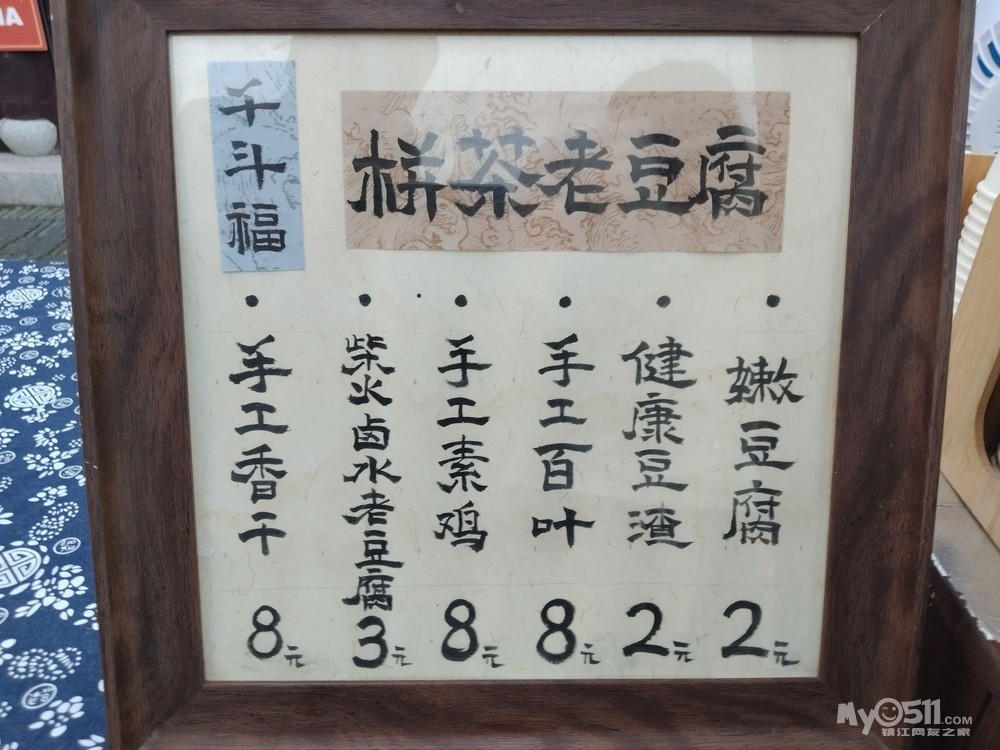 千斗福
栟茶老豆腐
手工香干
8元
柴火卤水老豆腐
3元
手工素鸡
8元
手工百叶
8元
健康豆渣
2元
嫩豆腐
2元
MY0511.COM
镇江网友之家